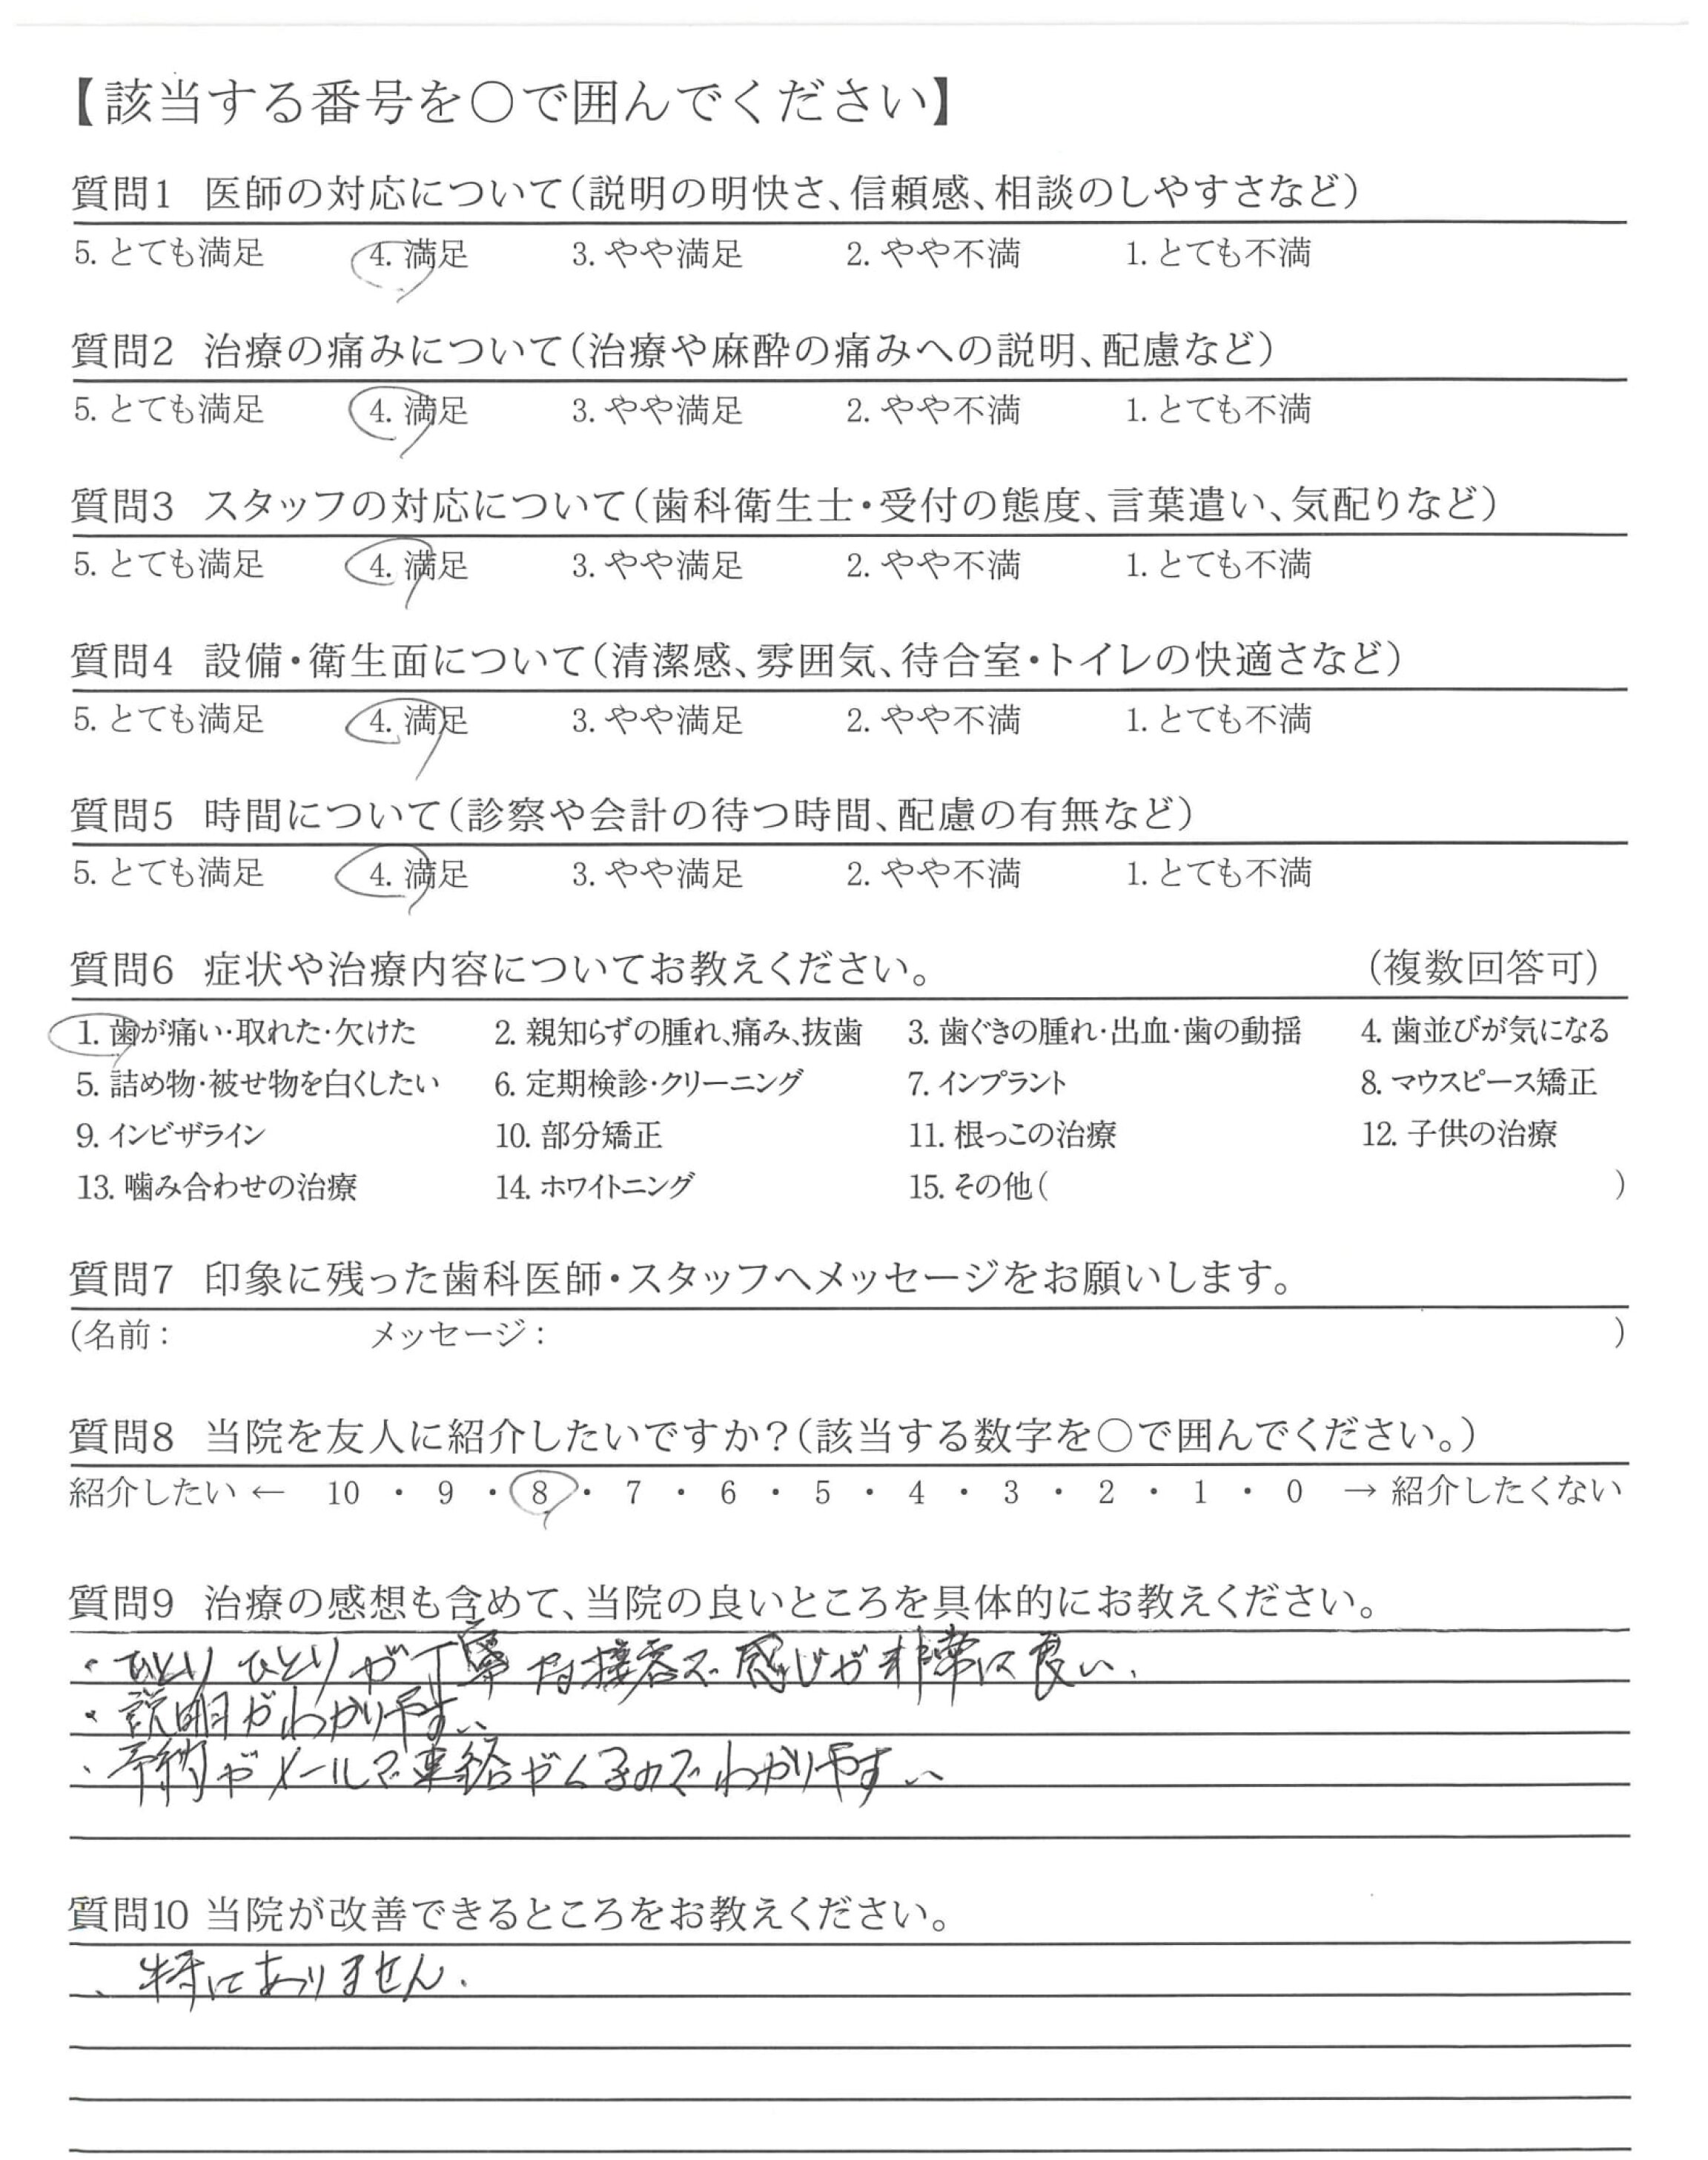 【該当する番号を○で囲んでください】
質問1 医師の対応について(説明の明快さ、信頼感、相談のしやすさなど)
5. とても満足 4. 満足 3. やや満足 2. やや不満 1. とても不満
質問2 治療の痛みについて(治療や麻酔の痛みへの説明、配慮など)
5. とても満足 4. 満足 3. やや満足 2. やや不満 1. とても不満
質問3 スタッフの対応について(歯科衛生士・受付の態度、言葉遣い、気配りなど)
5. とても満足 4. 満足 3. やや満足 2. やや不満 1. とても不満
質問4 設備・衛生面について(清潔感、雰囲気、待合室・トイレの快適さなど)
5. とても満足 4. 満足 3. やや満足 2. やや不満 1. とても不満
質問5 時間について(診察や会計の待つ時間、配慮の有無など)
5. とても満足 4. 満足 3. やや満足 2. やや不満 1. とても不満
質問6 症状や治療内容についてお教えください。 (複数回答可)
1. 歯が痛い・取れた・欠けた 2. 親知らずの腫れ、痛み、抜歯 3. 歯ぐきの腫れ・出血・歯の動揺 4. 歯並びが気になる
5. 詰め物・被せ物を白くしたい 6. 定期検診・クリーニング 7. インプラント 8. マウスピース矯正
9. インビザライン 10. 部分矯正 11. 根っこの治療 12. 子供の治療
13. 噛み合わせの治療 14. ホワイトニング 15. その他( )
質問7 印象に残った歯科医師・スタッフへメッセージをお願いします。
(名前: メッセージ: )
質問8 当院を友人に紹介したいですか?(該当する数字を○で囲んでください。)
紹介したい ← 10 ・ 9 ・ 8 ・ 7 ・ 6 ・ 5 ・ 4 ・ 3 ・ 2 ・ 1 ・ 0 → 紹介したくない
質問9 治療の感想も含めて、当院の良いところを具体的にお教えください。
・ひとりひとりが丁寧な接客で感じが非常に良い.
・説明がわかりやすい
・予約がメールで連絡がくるのでわかりやすい
質問10 当院が改善できるところをお教えください。
、特にありません.